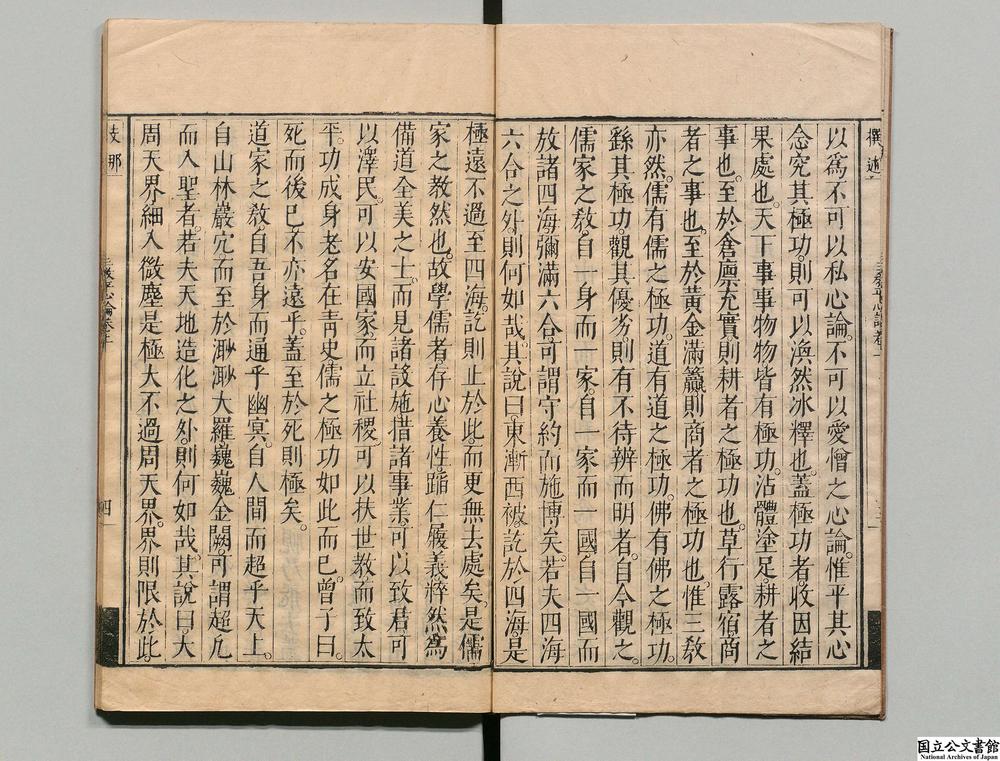 撰述
以爲不可以私心論。不可以愛憎之心論。惟平其心
念究其極功。則可以渙然冰釋也。蓋極功者。收因結
果處也。天下事事物物皆有極功。沾體塗足。耕者之
事也。至於倉廩充實。則耕者之極功也。草行露宿。商
者之事也。至於黃金滿籯。則商者之極功也。惟三敎
亦然。儒有儒之極功。道有道之極功。佛有佛之極功。
繇其極功。觀其優劣。則有不待辨而明者。自今觀之。
儒家之敎。自一身而一家。自一家而一國。自一國而
放諸四海彌滿六合。可謂守約而施博矣。若夫四海
六合之外。則何如哉。其說曰。東漸西被訖於四海。是
極遠不過至四海。訖則止於此。而更無去處矣。是儒
家之敎然也。故學儒者。存心養性。蹈仁履義。粹然爲
備道全美之士。而見諸設施。措諸事業。可以致君。可
以澤民。可以安國家。而立社稷。可以扶世敎而致太
平。功成身老。名在靑史。儒之極功如此而已。曾子曰。
死而後已不亦遠乎。蓋至於死則極矣。
道家之敎。自吾身而通乎幽冥。自人間而超乎天上。
自山林巖穴。而至於渺渺大羅巍巍金闕。可謂超凡
而入聖者。若夫天地造化之外。則何如哉。其說曰。大
周天界。細入微塵。是極大不過周天界。界則限於此。
支那
四
国立公文書館
National Archives of Japan